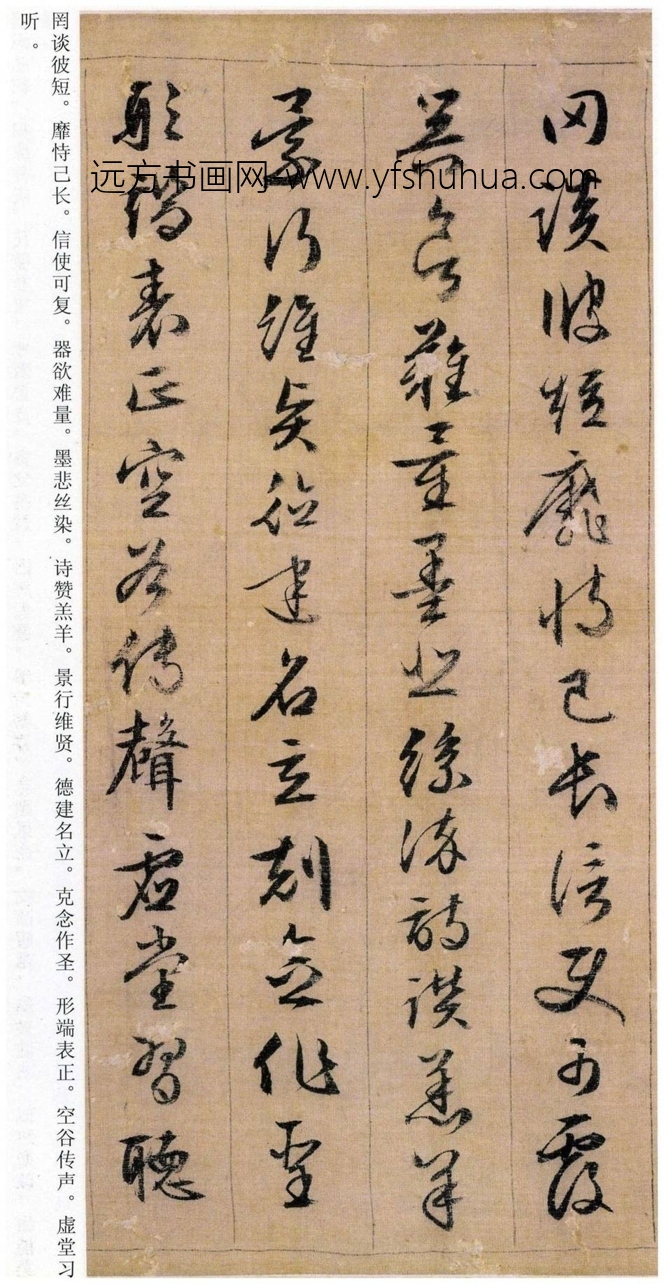 罔談彼短靡恃己長信使可覆
器欲難量墨悲絲染詩讚羔羊
景行維賢德建名立剋念作聖
形端表正空谷傳聲虛堂習聽
远方书画网 www.yfshuhua.com
罔谈彼短。靡恃己长。信使可复。器欲难量。墨悲丝染。诗赞羔羊。景行维贤。德建名立。克念作圣。形端表正。空谷传声。虚堂习
听。